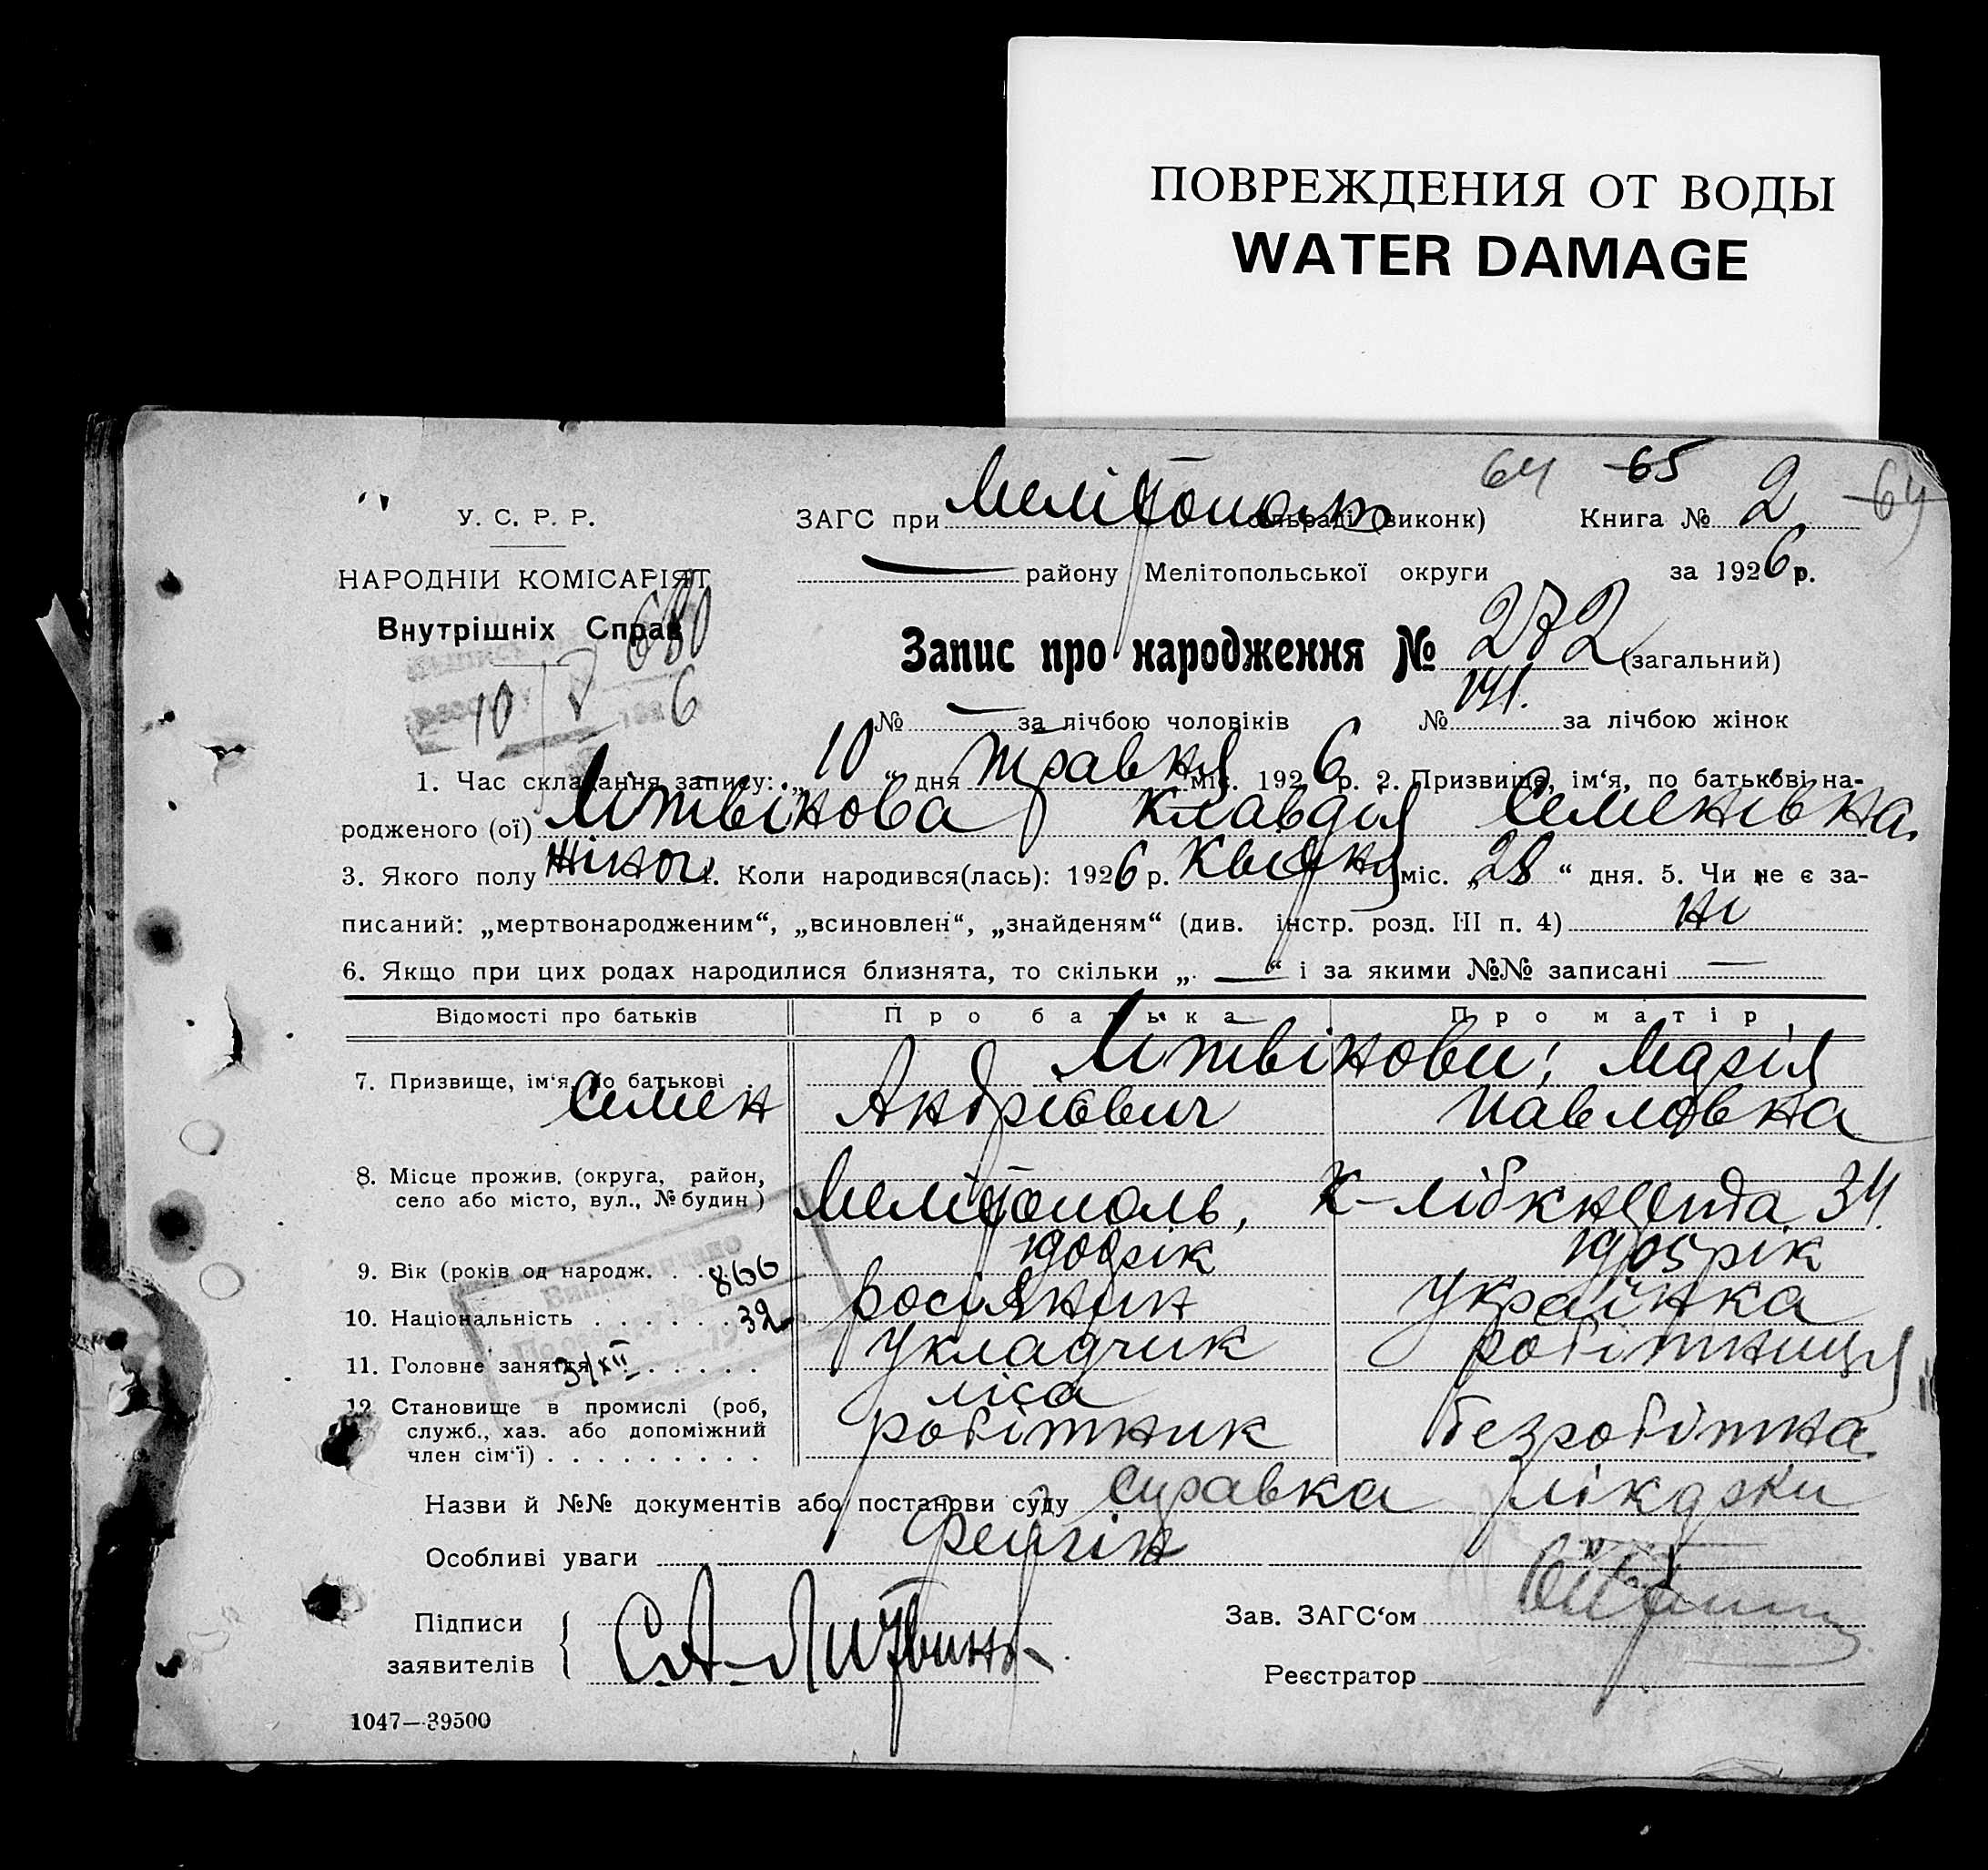 ПОВРЕЖДЕНИЯ ОТ ВОДЫ
WATER DAMAGE
64 65 64
У. С. Р. Р.
НАРОДНІЙ КОМІСАРІЯТ
Внутрішніх Справ
680
10/V 6
ЗАГС при Мелітополь сільраді (виконк) Книга № 2
— району Мелітопольської округи за 1926 р.
Запис про народження № 272 (загальний)
№ — за лічбою чоловіків № 141. за лічбою жінок
1. Час складання запису: „10“ дня Травня міс. 1926 р. 2. Призвище, ім‘я, по батькові на-
родженого (ої) Літвінова Клавдія Семенівна.
3. Якого полу жіноч. 4. Коли народився(лась): 1926 р. Квітня міс. „28“ дня. 5. Чи не є за-
писаний: „мертвонародженим“, „всиновлен“, „знайденям“ (див. інстр. розд. III п. 4) ні
6. Якщо при цих родах народилися близнята, то скільки „—“ і за якими №№ записані —
Відомості про батьків Про батька Про матір
7. Призвище, ім‘я, по батькові Літвінови; Марія
Семен Андрієвич Павловна
8. Місце прожив. (округа, район,
село або місто, вул., № будин.) Мелітополь, К-Лібкнехта 34.
9. Вік (років од народж. 1900 рік 1905 рік
866
10. Національність росіянин українка
32
11. Головне заняття укладчик робітниця
31/XII
ліса
12. Становище в промислі (роб,
служб., хаз. або допоміжний
член сім‘ї) робітник безробітна
Назви й №№ документів або постанови суду справка лікарки
Фейгін
Особливі уваги
Підписи
заявителів С.А. Литвин
Зав. ЗАГС‘ом
Реєстратор
1047—39500